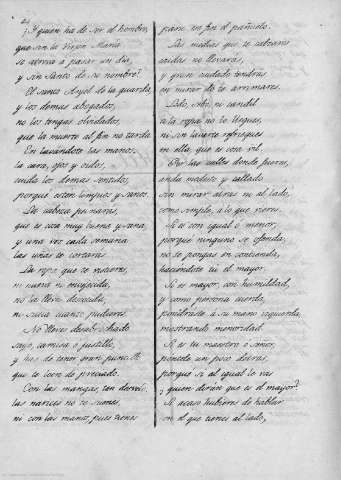 ¿Y quien ha de ser el hombre,
que sin la Virgen Maria
se atreva a pasar un dia,
y sin Santo de su nombre?
El Santo Angel de la guarda,
y los demas abogados,
no los tengas olvidados,
que la muerte al fin no tarda.
En lavandote las manos,
la cara, ojos y oidos,
cuida los demas sentidos,
porque esten limpios y sanos.
La cabeza peinaras,
que es cosa muy buena y sana,
y una vez cada semana
las uñas te cortaras.
La ropa que te vistieres,
ni
no la lleves
ni sucia cuanto pudieres.
No lleves desabrochado
sayo, camisa o justillo,
y has de tener gran
que te loen de preciado.
Con las mangas, ten
las narices no te suenes,
ni con las manos, pues tienes
para en fin el pañuelo.
Las medias que te calzares
caidas no llevarás,
y gran cuidado tendras
en mirar do te arrimares.
Lodo, sebo, ni candil
a la ropa no le llegues,
ni sin lavarte
en ella, que es cosa vil.
Por las calles donde fueres,
anda maduro y callado
sin mirar atras ni al lado,
como simple, a lo que vieres.
Si es con igual ó menor,
porque ninguno se ofenda,
no te pongas en contienda,
haciendote tu el mayor.
Si es mayor, con humildad,
y como persona cuerda,
pondraste a su mano izquierda,
mostrando menoridad.
Si es tu maestro o Señor,
ponte un poco detras,
porque si al igual le vas
¿quien dirán que es el mayor?
Si acaso hubieres de hablar
con el que tienes al lado,